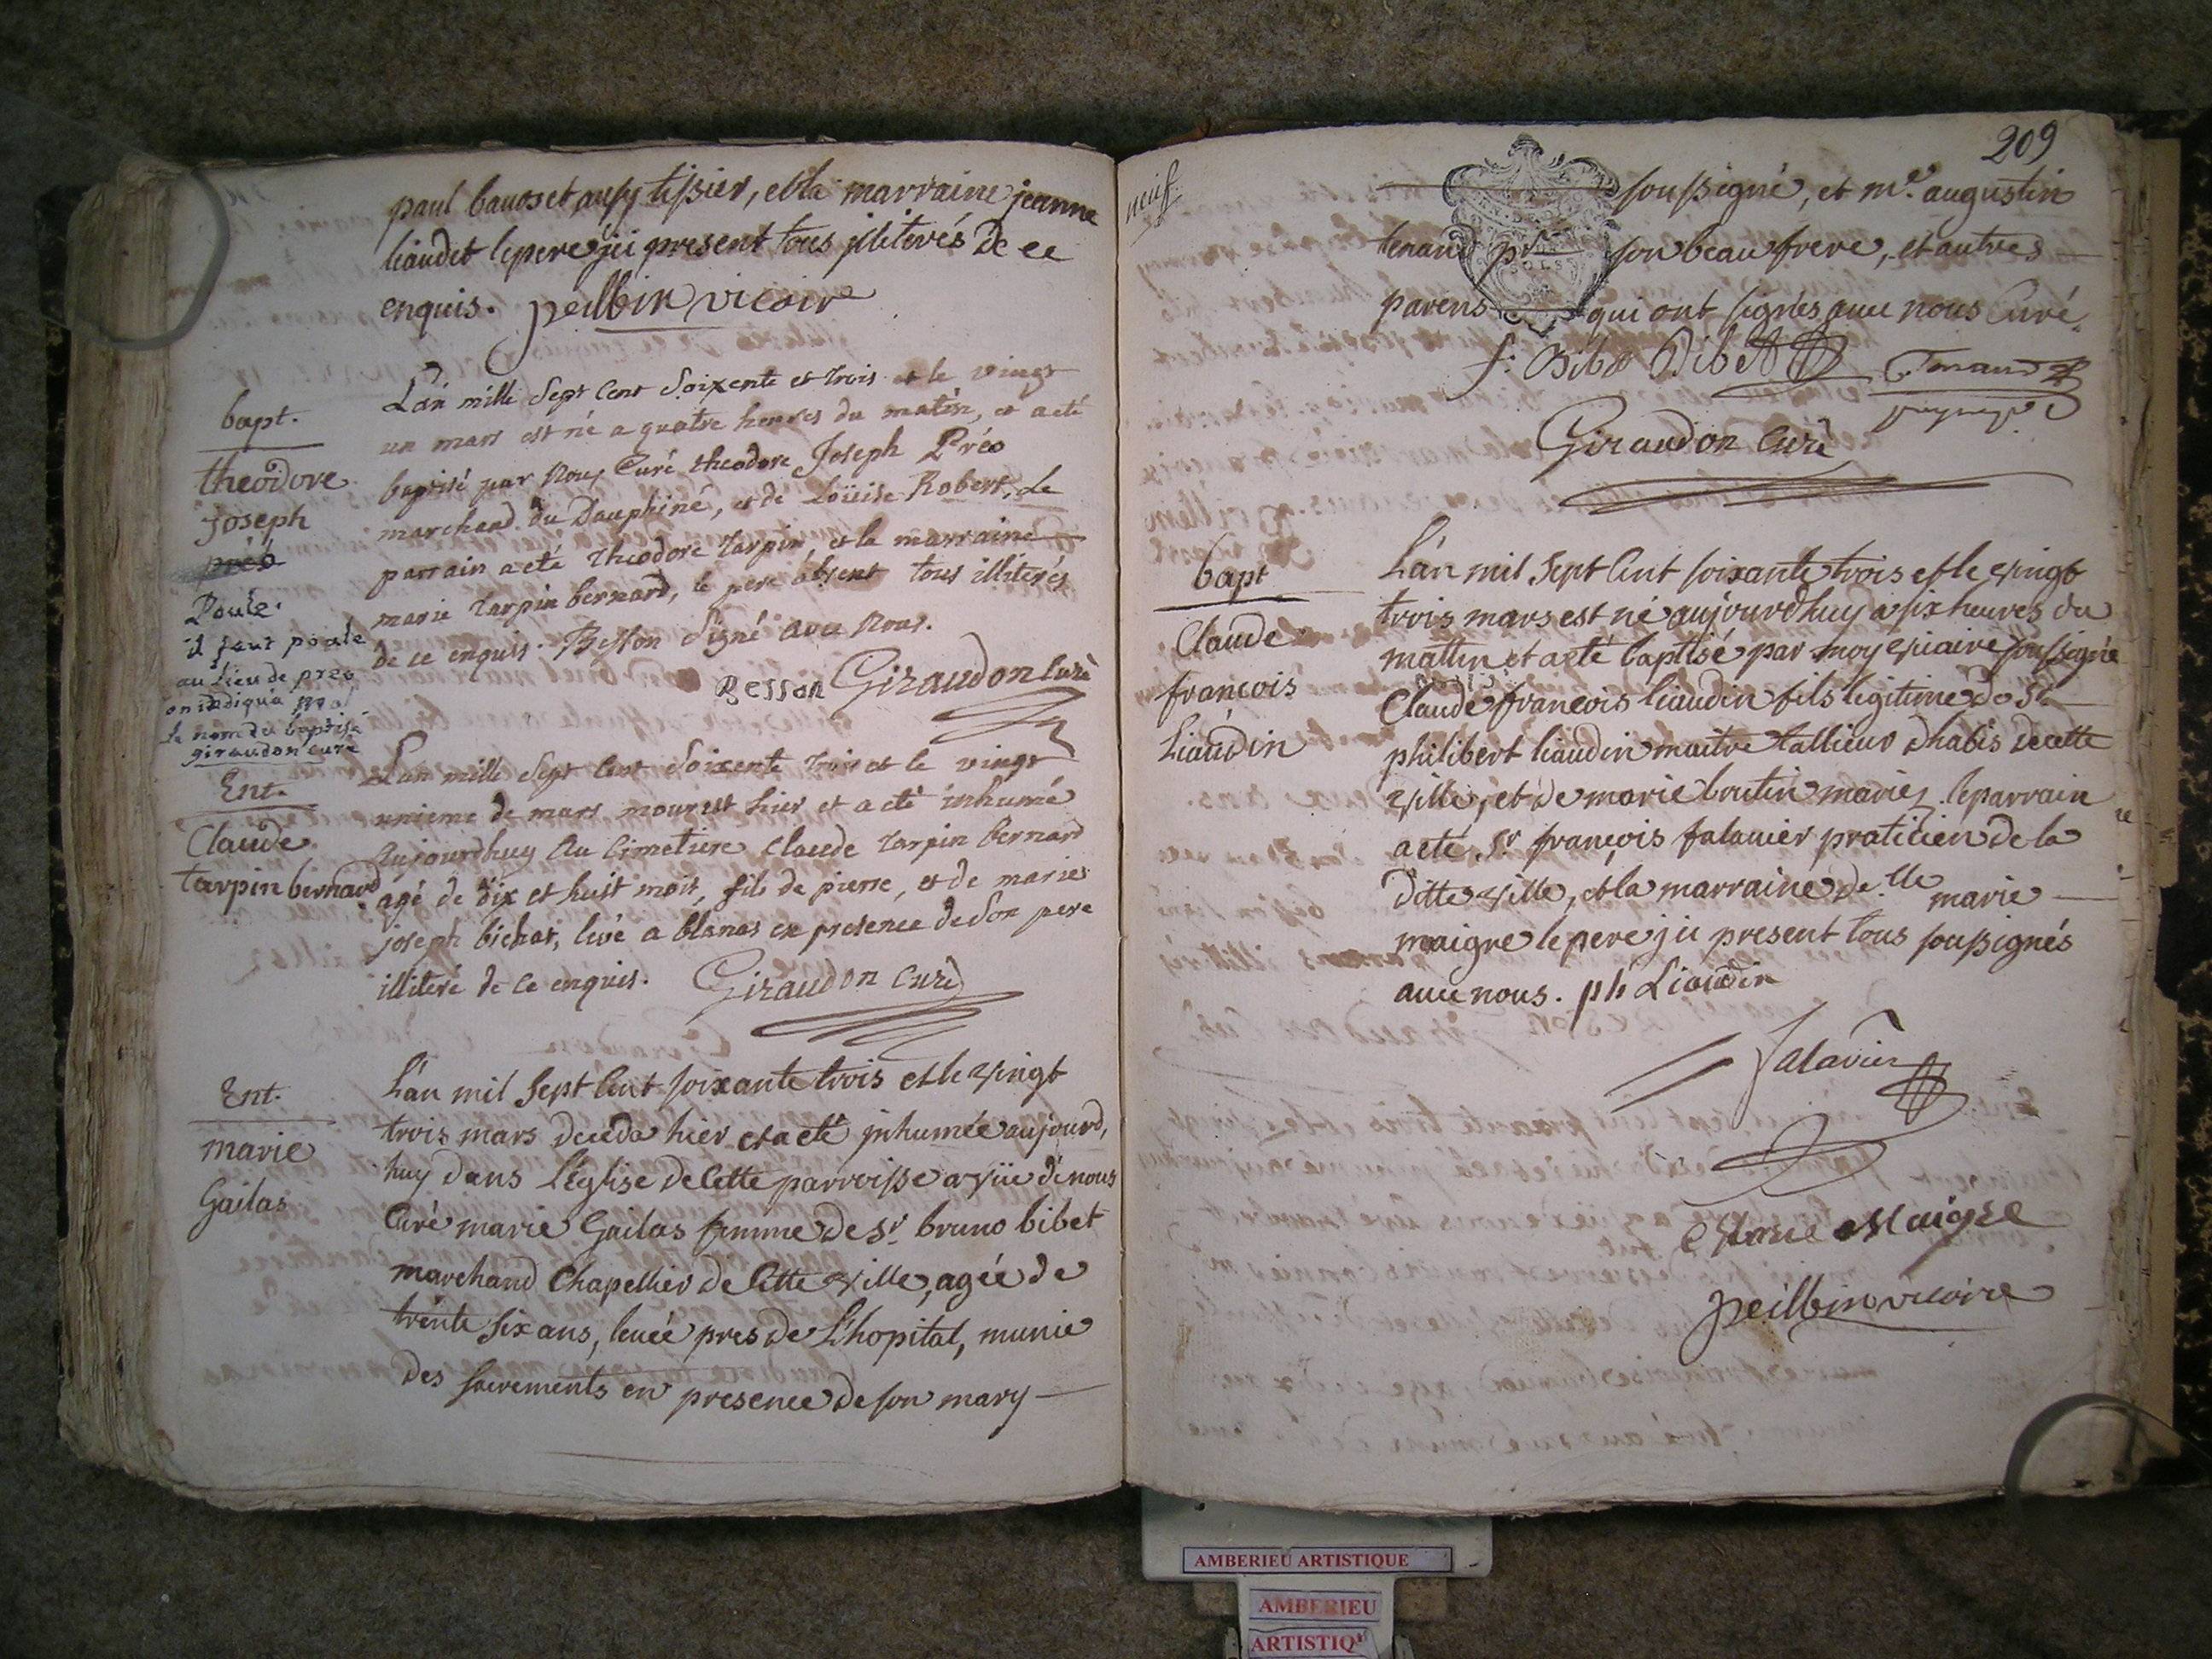 paul bauoset aussy tissier, et la marraine jeanne
liaudet le pere jci present tous jlliterés de ce
enquis. peillbin vicaire
bapt.
theodore
joseph
préo
Poule.
il faut poule
au lieu de preo
on indiqua mal
le nom du baptisé
giraudon curé
L'an mille Sept Cent Soixente et trois et le vingt
un mars est né a quatre heures du matin, et a eté
baptisé par Nous Curé theodore Joseph Préo
marchand du Dauphiné, et de Loüise Robert, Le
parrain a eté theodore tarpin, et la marraine
marie tarpin bernard, le pere absent tous illiterés
de ce enquis. Besson Signé avec Nous.
Besson Giraudon Curé
Ent.
Claude
tarpin bernard
L'an mille Sept Cent Soixente trois et le vingt
unieme de mars mourut hier et a eté inhumé
Aujourdhuy Au Cimetiere Claude tarpin bernard
agé de dix et huit mois, fils de pierre, et de marie
joseph bichat, levé a blanas en presence de Son pere
illiteré de ce enquis. Giraudon Curé
Ent.
marie
Gailas
L'an mil Sept Cent soixante trois et le vingt
trois mars deceda hier et a eté jnhumée aujourd,
huy dans L'Église de Cette parroisse a vüe de nous
Curé marie Gailas femme de Sr. bruno bibet
marchand Chapellier de Cette ville, agée de
trente six ans, leuée pres de L'hopital, munie
des sacrements en presence de son mary
neuf
209
soussigné, et me. augustin
tenand pr son beau frere, et autres
parens qui ont signés auec nous Curé.
f. Bibet Bibet Tenand
Giraudon Curé
bapt
Claude
françois
Liaudin
L'an mil Sept Cent soixante trois et le vingt
trois mars est né aujourdhuy a six heures du
mattin et a eté baptisé par moy vicaire soussigné
Claude françois liaudin fils legitime de Sr
philibert liaudin maitre tallieur dhabis de cette
ville, et de marie boutin mariés. le parrain
a eté Sr françois falauier praticien de la
ditte ville, et la marraine de.lle marie
maigre le pere jci present tous soussignés
auec nous. ph Liaudin
falavier
Marie Maigre
peillbin vicaire
AMBERIEU ARTISTIQUE
AMBERIEU
ARTISTIQ